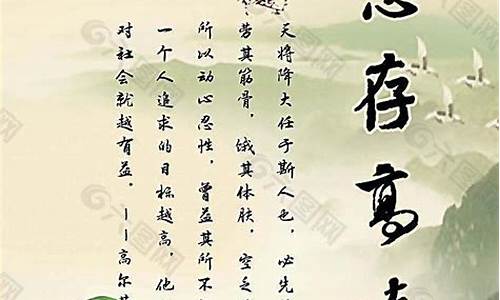 志存高
天将降大任于斯人也,必先
劳其筋骨,饿其体肤,空乏
所以动心忍性,曾益其所不
一个人追求的目标越高,他
对社会就越有益。——高尔